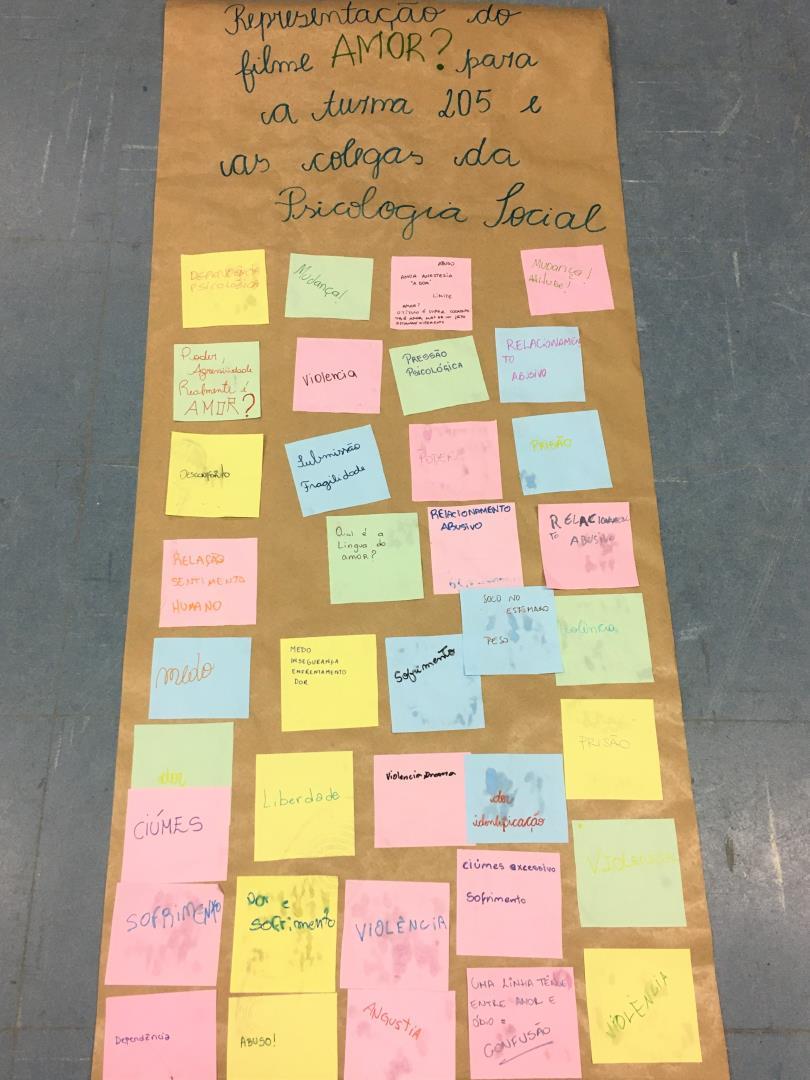 Representação do
filme AMOR? para
a turma 205 e
as colegas da
Psicologia Social
DEPENDÊNCIA
PSICOLÓGICA
Mudança!
ABUSO
AMOR ANESTESIA
"A DOR"
LIMITE
AMOR?
Mudança!
Atitude!
Poder,
Agressividade
Realmente é
AMOR?
Violencia
PRESSÃO
PSICOLÓGICA
RELACIONAMEN
TO
ABUSIVO
DESCONFORTO
Submissão
Fragilidade
PODER
PRISÃO
RELAÇÃO
SENTIMENTO
HUMANO
Qual é a
Lingua do
amor?
RELACIONAMENTO
ABUSIVO
RELACIONAMEN
TO ABUSIVO
medo
MEDO
INSEGURANÇA
ENFRENTAMENTO
DOR
Sofrimento
SOCO NO
ESTÔMAGO
PESO
violência
dor
CIÚMES
Liberdade
Violencia Drama
dor
identificação
PRISÃO
SOFRIMENTO
Dor e
Sofrimento
VIOLÊNCIA
ciúmes excessivo
Sofrimento
VIOLENCIA
Dependência
ABUSO!
ANGUSTIA
UMA LINHA TÊNUE
ENTRE AMOR E
ÓDIO =
CONFUSÃO
VIOLÊNCIA